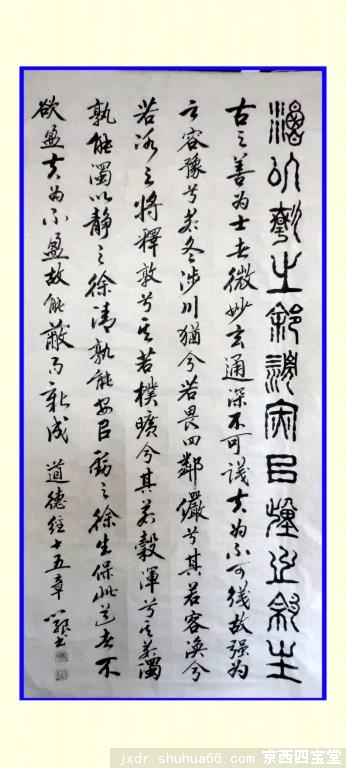 濁以靜之徐清安以動之徐生
古之善为士者微妙玄通深不可識夫为不可識故强为
之容豫兮若冬涉川猶兮若畏四鄰儼兮其若容渙兮
若冰之將釋敦兮其若樸曠兮其若穀渾兮其若濁
孰能濁以靜之徐清孰能安以動之徐生保此道者不
欲盈夫为不盈故能蔽而新成 道德經十五章
jxdr.shuhua66.com 京西四宝堂